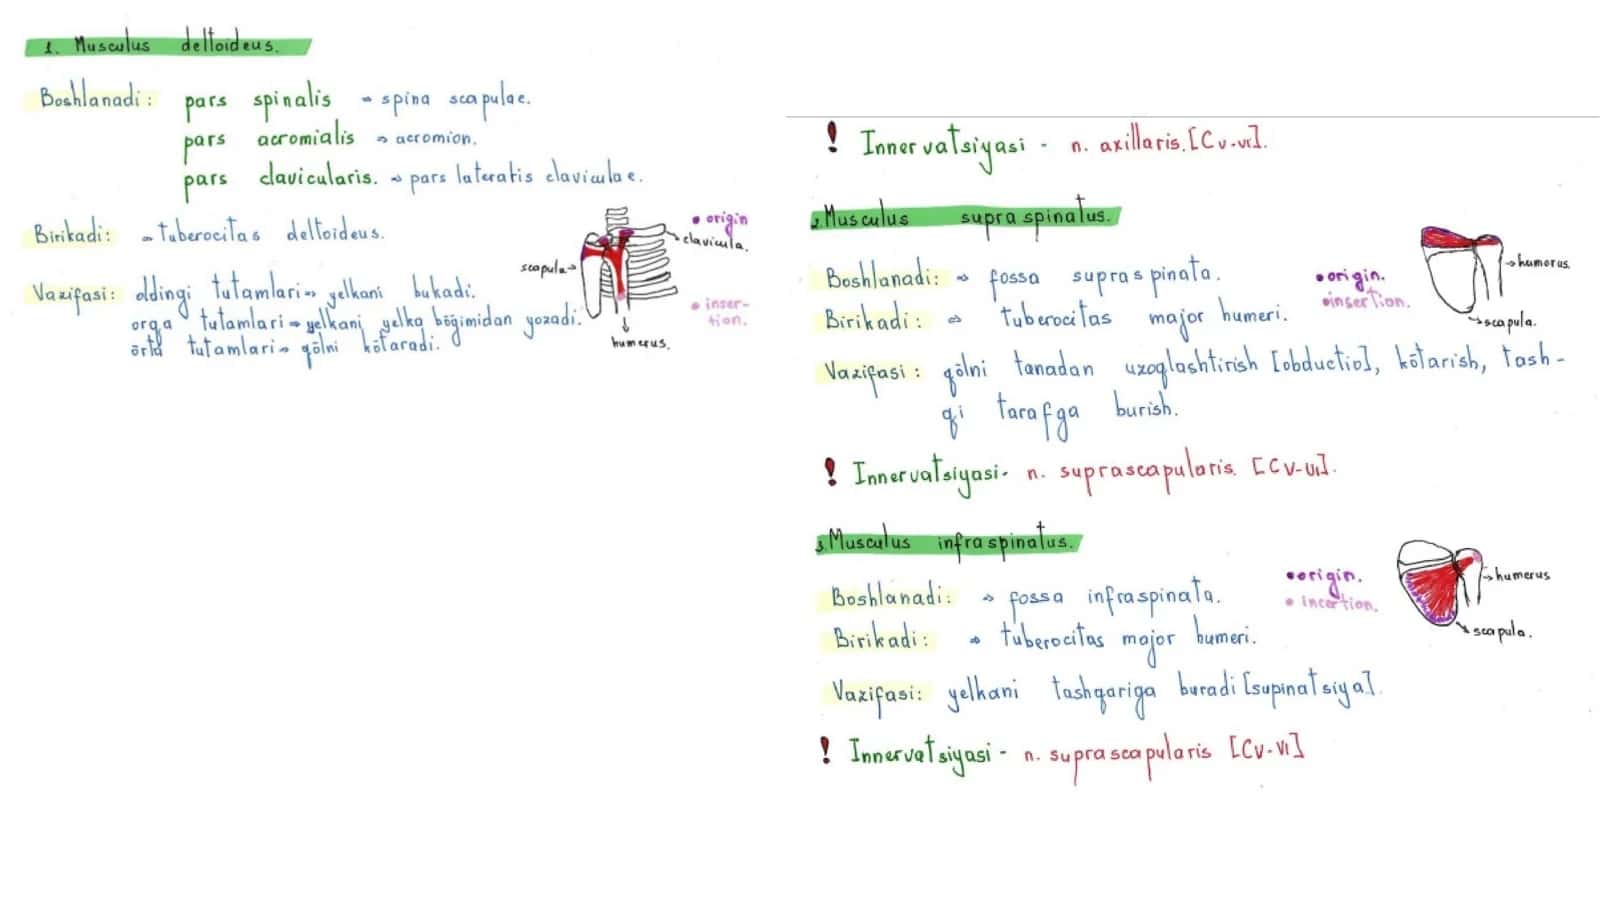 1. Musculus deltoideus.
Boshlanadi: pars spinalis ⇒ spina scapulae.
pars acromialis ⇒ acromion.
pars clavicularis. ⇒ pars lateratis claviculae.
Birikadi: ⇒ tuberocitas deltoideus.
• origin
clavicula.
scapula
• inser-
tion.
humerus.
Vazifasi: oldingi tutamlari ⇒ yelkani bukadi.
orqa tutamlari ⇒ yelkani yelka bōğimidan yozadi.
ōrta tutamlari ⇒ qōlni kōtaradi.
! Innervatsiyasi - n. axillaris.[Cv-vi].
2. Musculus supraspinatus.
Boshlanadi: ⇒ fossa supraspinata.
Birikadi: ⇒ tuberocitas major humeri.
• origin.
• insertion.
humorus.
scapula.
Vazifasi: qōlni tanadan uzoqlashtirish [obductio], kōtarish, tash-
qi tarafga burish.
! Innervatsiyasi- n. suprascapularis. [Cv-vi].
3. Musculus infraspinatus.
Boshlanadi: ⇒ fossa infraspinata.
Birikadi: ⇒ tuberocitas major humeri.
• origin.
• incertion.
humerus
scapula.
Vazifasi: yelkani tashqariga buradi [supinatsiya].
! Innervatsiyasi - n. suprascapularis [Cv-vi]